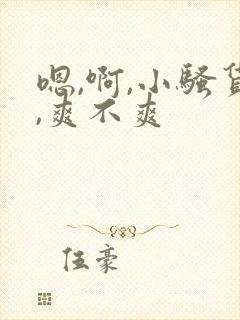 嗯,啊,小骚货
,爽不爽
伍豪